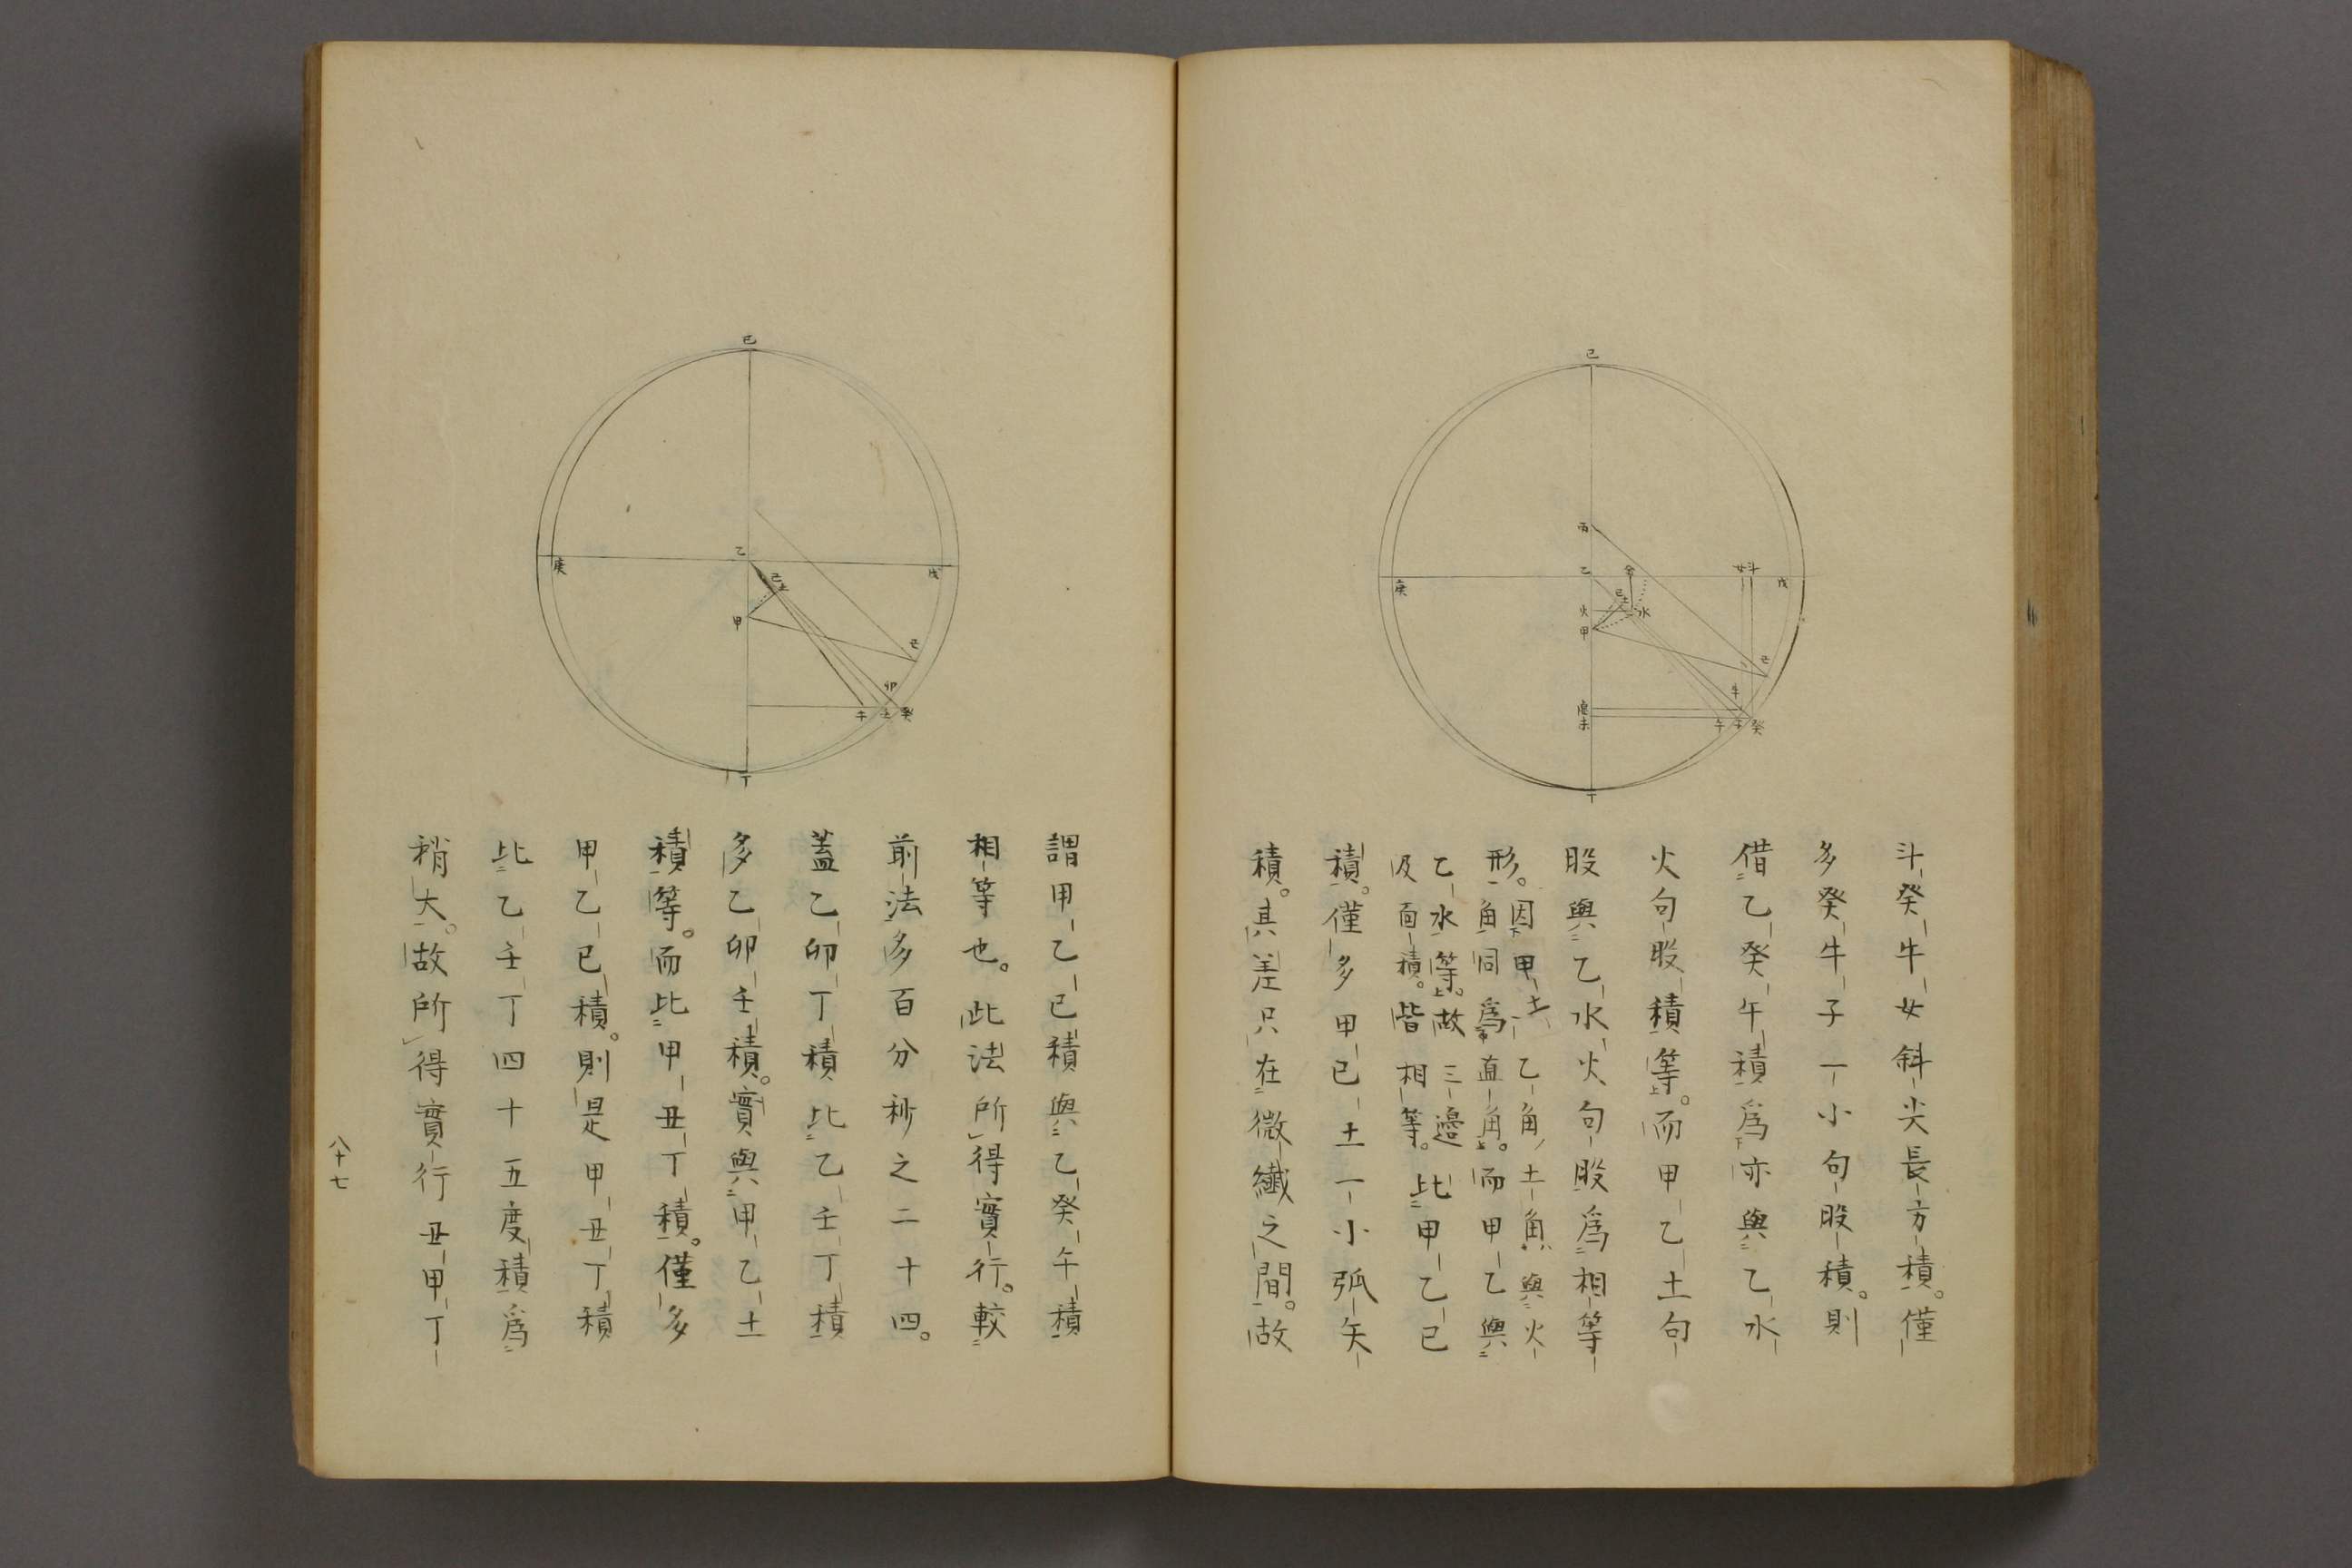 斗癸牛女斜尖長方積。僅
多癸牛子一小句股積。則
借乙癸午積爲亦與乙水
火句股積等。而甲乙土句
股與乙水火句股爲相等
形。因甲土乙角土角與火
角同爲直角。而甲乙與
乙水等。故三邊
及面積。皆相等。比甲乙已
積。僅多甲已土一小弧矢
積。其差只在微纖之間。故
己
丙
乙
金
女斗
戊
庚
已土
火
水
甲
丑
牛
未
午子癸
丁
謂甲乙已積與乙癸午積
相等也。此法所得實行。較
前法多百分秒之二十四。
蓋乙卯丁積比乙壬丁積
多乙卯壬積。實與甲乙土
積等。而比甲丑丁積。僅多
甲乙已積。則是甲丑丁積
比乙壬丁四十五度積爲
稍大。故所得實行丑甲丁
己
乙
戊
庚
已土
甲
丑
卯
午壬癸
丁
八十七